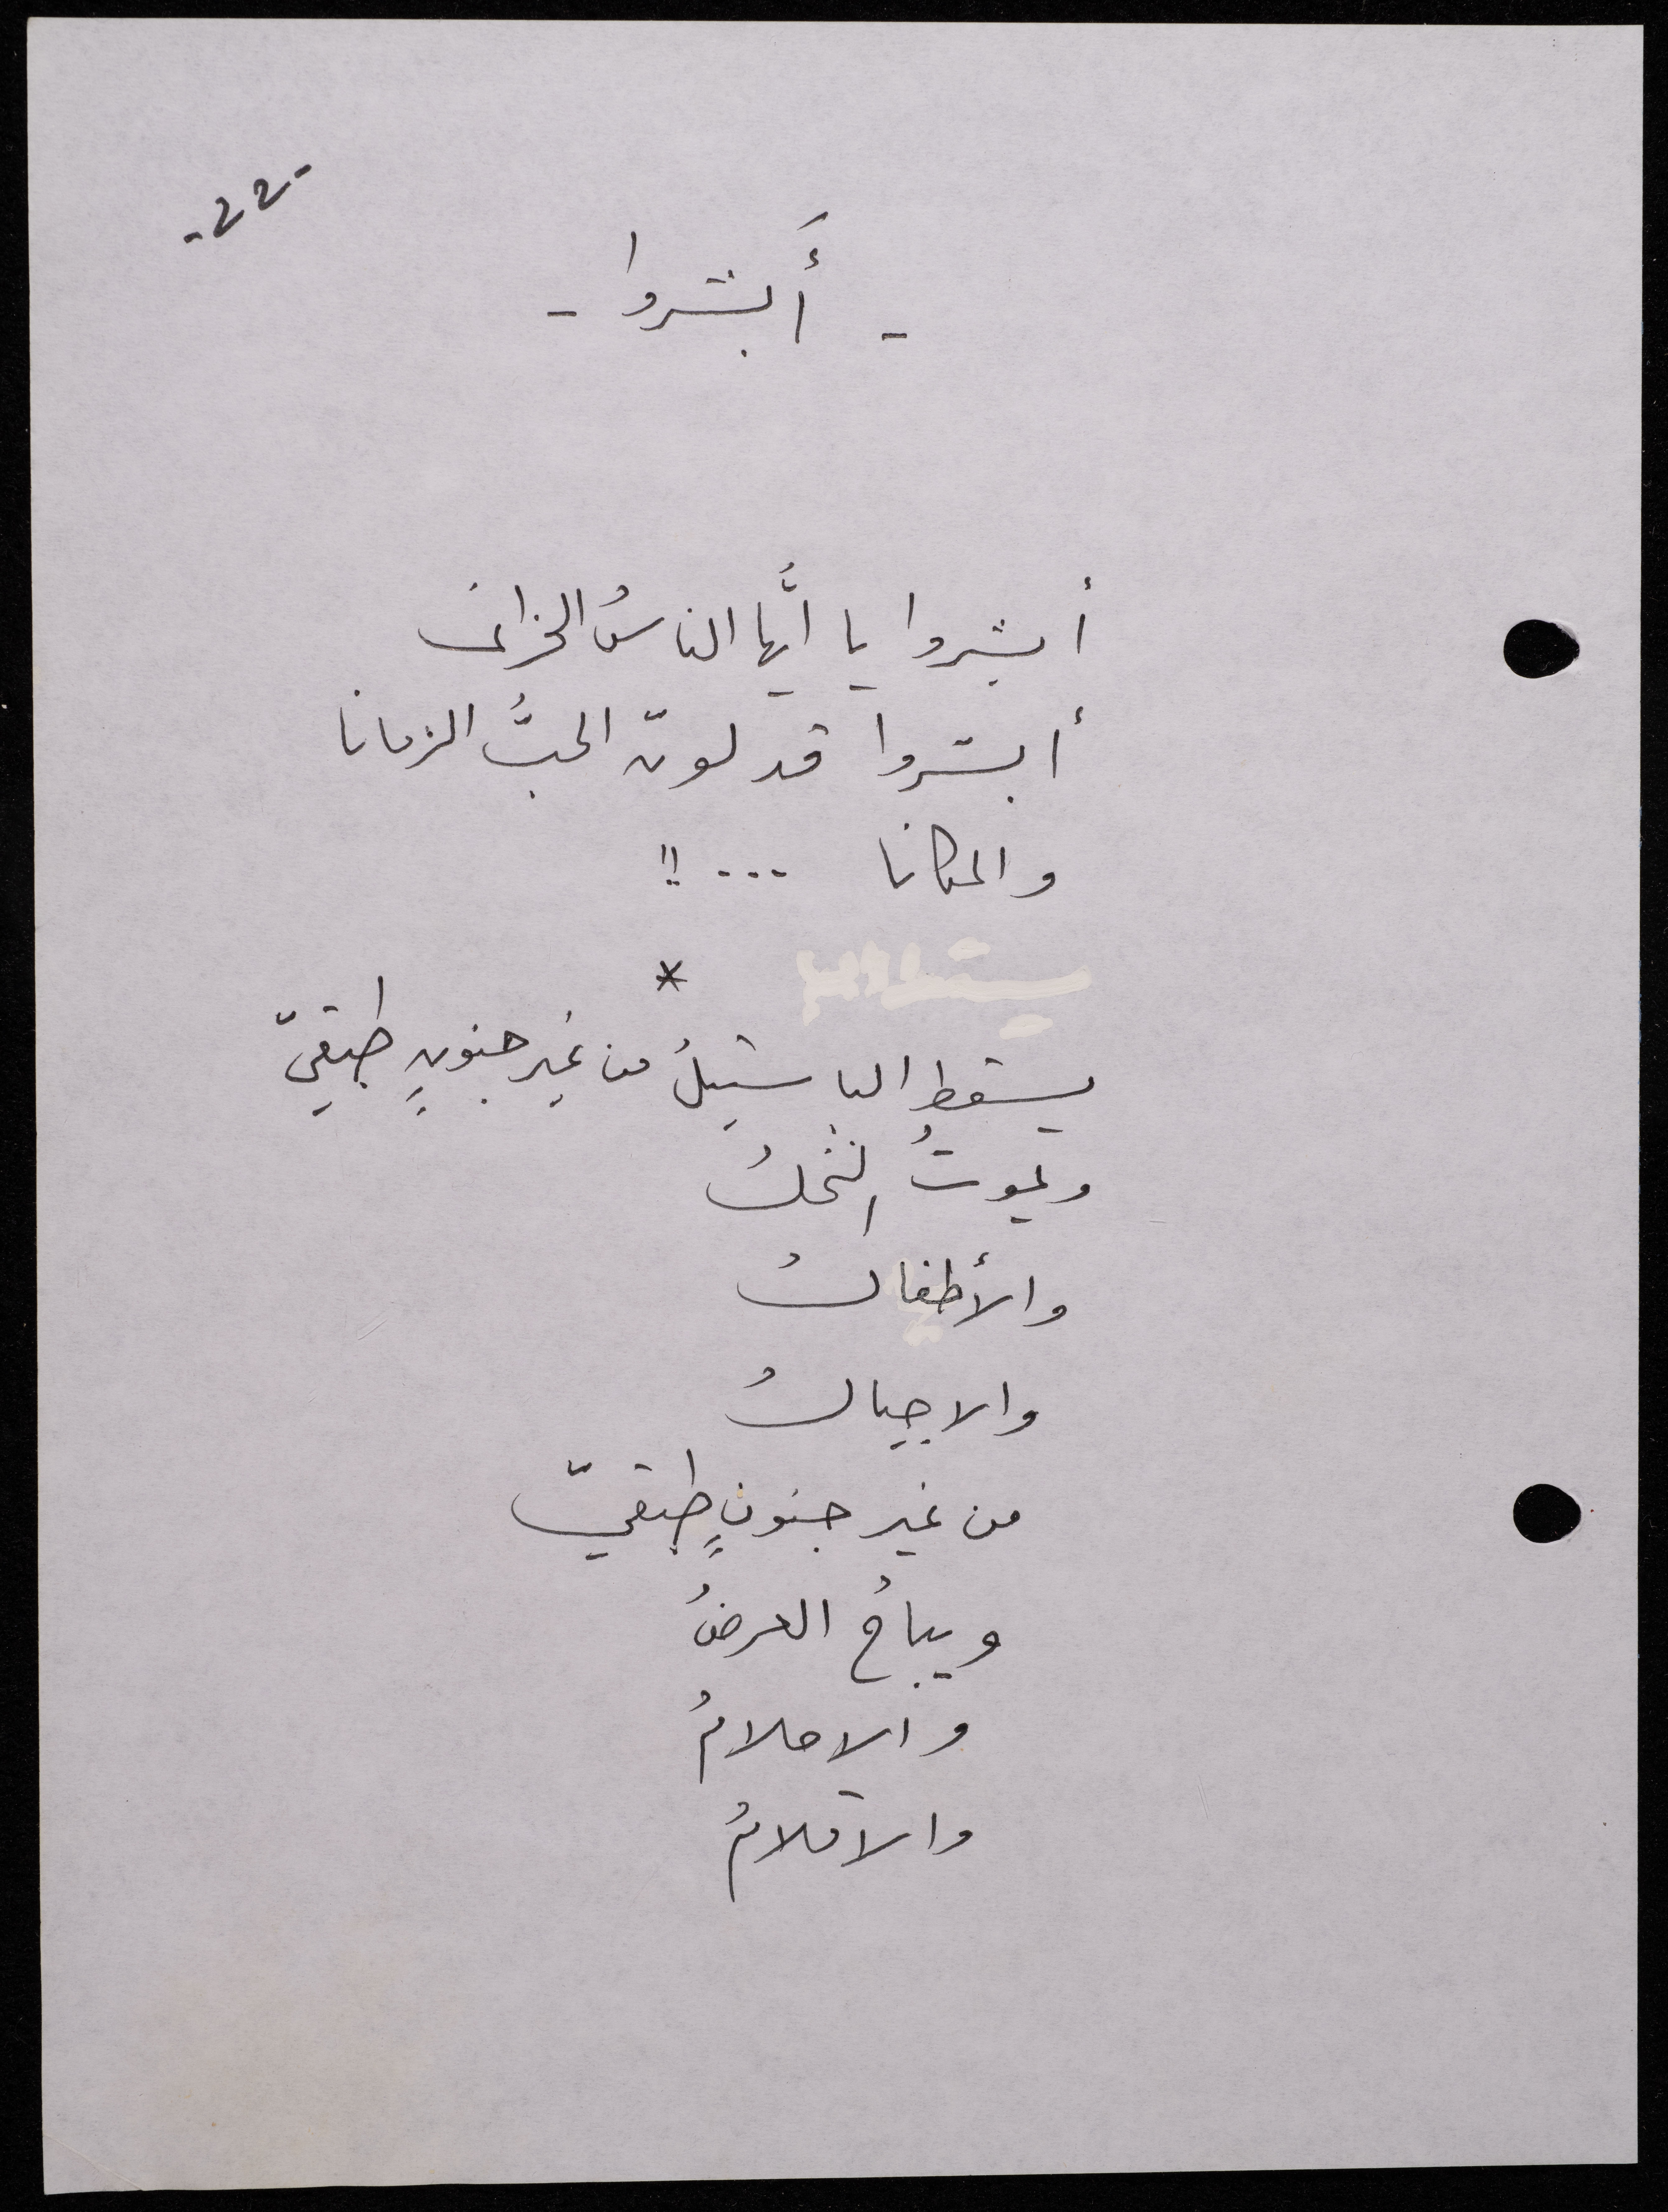 -22-
- أَبشروا -
أبشروا يا أيُّها الناسُ الحزانى
أبشروا قد لوّن الحبُّ الزمانا
والمكانا ... !!
*
يسقط الباستيلُ من غير جنونٍ طبقيّ
ويموتُ
والأطفالُ
والاجيالُ
من غير جنونٍ طبقيّ
ويباعُ العرضُ
والاحلامُ
والاقلامُ